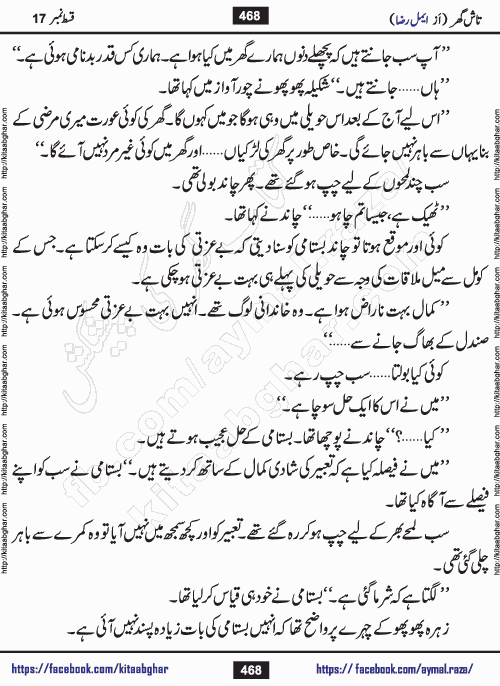 تاش گھر (از ایمل رضا) 468 قسط نمبر 17
”آپ سب جانتے ہیں کہ پچھلے دنوں ہمارے گھر میں کیا ہوا ہے۔ ہماری کس قدر بدنامی ہوئی ہے۔“
”ہاں......جانتے ہیں۔“ شکیلہ پھوپھو نے چور آواز میں کہا تھا۔
”اس لیے آج کے بعد اس حویلی میں وہی ہو گا جو میں کہوں گا۔ گھر کی کوئی عورت میری مرضی کے
بنا یہاں سے باہر نہیں جائے گی۔ خاص طور پر گھر کی لڑکیاں......اور گھر میں کوئی غیر مرد نہیں آئے گا۔“
سب چند لمحوں کے لیے چپ ہو گئے تھے۔ پھر چاند بولی تھی۔
”ٹھیک ہے، جیسا تم چاہو......“ چاند نے کہا تھا۔
کوئی اور موقع ہوتا تو چاند بستامی کو سنا دیتی کہ بے عزتی کی بات وہ کیسے کر سکتا ہے۔ جس کے
کومل سے میل ملاقات کی وجہ سے حویلی کی پہلے ہی بہت بے عزتی ہو چکی ہے۔
”کمال بہت ناراض ہوا ہے۔ وہ خاندانی لوگ تھے۔ انہیں بہت بے عزتی محسوس ہوئی ہے۔
صندل کے بھاگ جانے سے......“
کوئی کیا بولتا......سب چپ رہے۔
”میں نے اس کا ایک حل سوچا ہے۔“
”کیا......؟“ چاند نے پوچھا تھا۔ بستامی کے حل عجیب ہوتے ہیں۔
”میں نے فیصلہ کیا ہے کہ تعبیر کی شادی کمال کے ساتھ کر دیتے ہیں۔“ بستامی نے سب کو اپنے
فیصلے سے آگاہ کیا تھا۔
سب لمحے بھر کے لیے چپ ہو کر رہ گئے تھے۔ تعبیر کو اور کچھ سمجھ میں نہیں آیا تو وہ کمرے سے باہر
چلی گئی تھی۔
”لگتا ہے کہ شرما گئی ہے۔“ بستامی نے خود ہی قیاس کر لیا تھا۔
زہرہ پھوپھو کے چہرے پر واضح تھا کہ انہیں بستامی کی بات زیادہ پسند نہیں آئی ہے۔
https://facebook.com/kitaabghar 468 https://facebook.com/aymal.raza/
http://kitaabghar.com http://kitaabghar.com http://kitaabghar.com http://kitaabghar.com http://kitaabghar.com http://kitaabghar.com